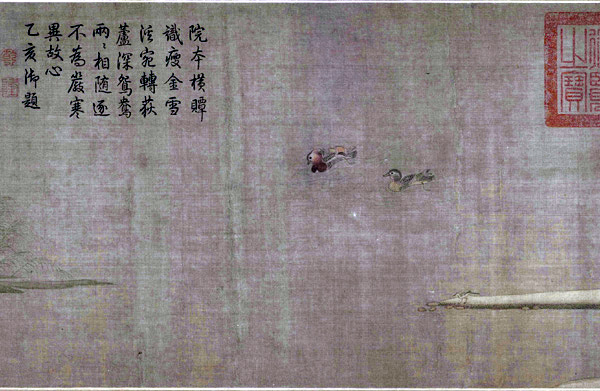 院本橫贉
識瘦金雪
溪宛轉荻
蘆深鴛鴦
兩〻相隨逐
不為嚴寒
異故心
乙亥御題
之寶